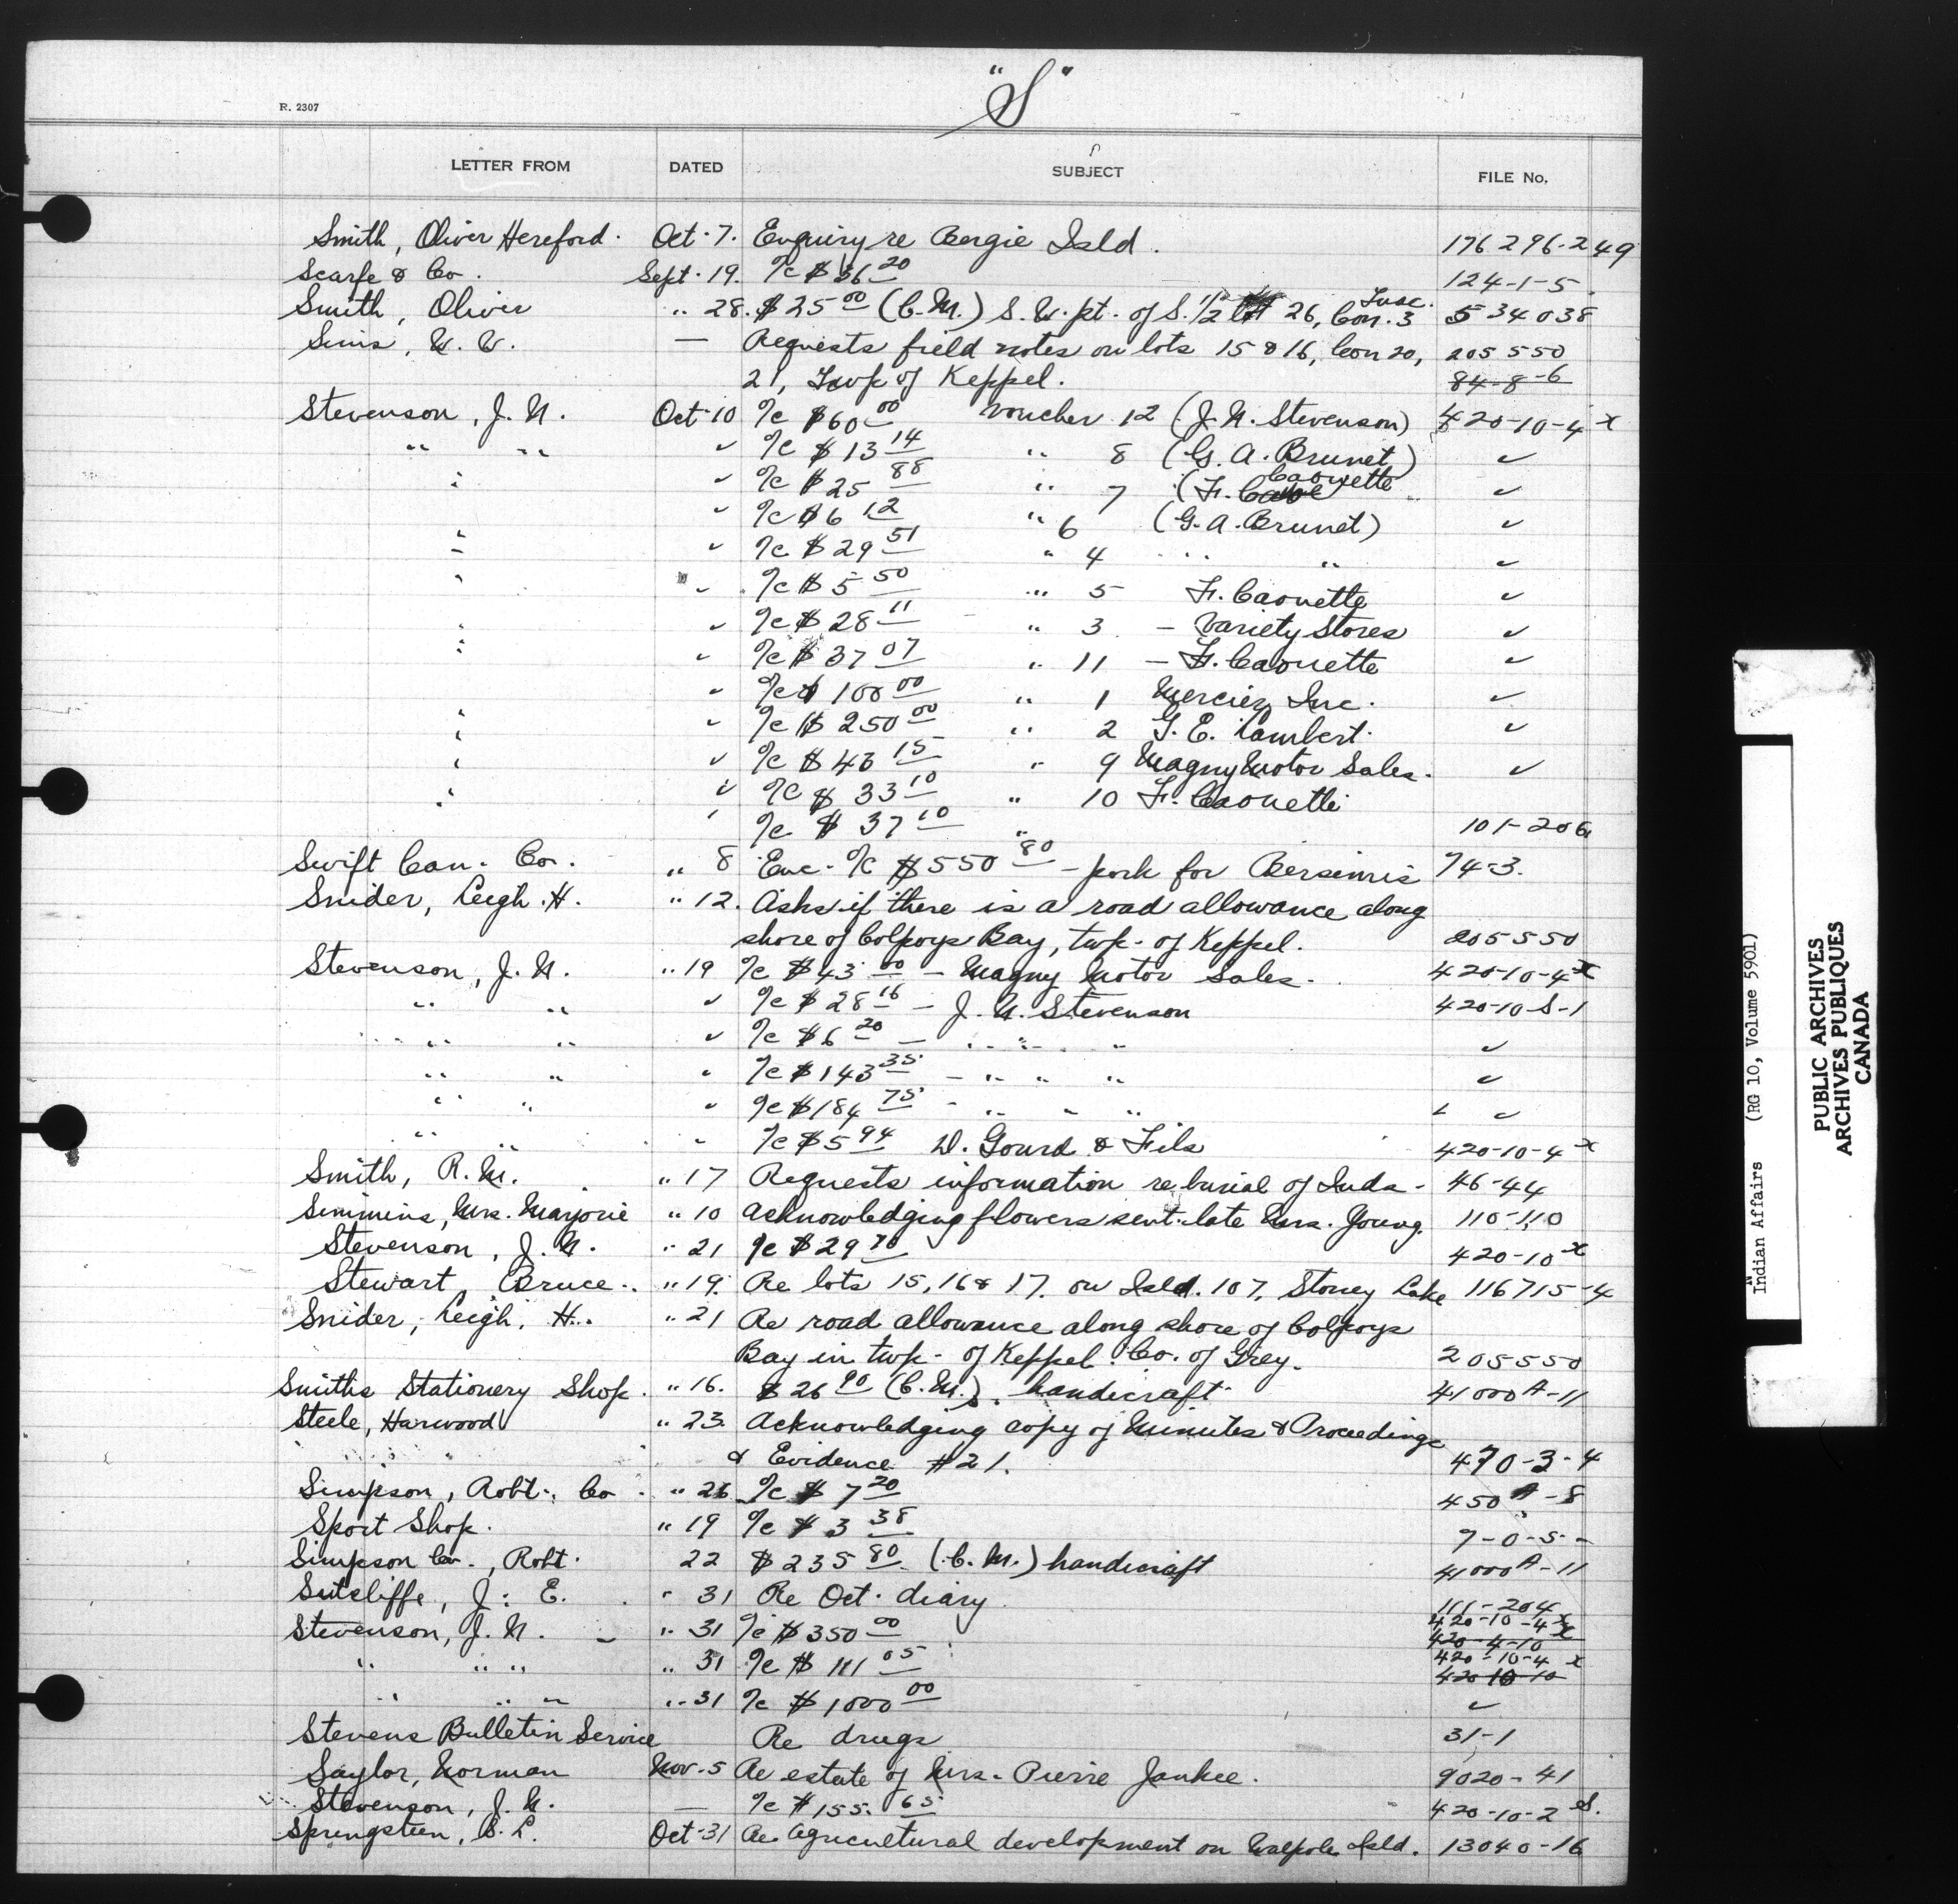 "S"
R. 2307
LETTER FROM DATED SUBJECT FILE No.
Smith, Oliver Hereford. Oct. 7. Enquiry re Bergie Isld. 176296-249
Scarfe & Co. Sept. 19. %c $36 20 124-1-5
Smith, Oliver " 28. $25 00 (C.M.) S.W. pt. of S. 1/2 lot 26, Con. 3 534038
Sims, W. W. — Requests field notes on lots 15 & 16, Con 20, 205550
21, Twp of Keppel. 84-8-6
Stevenson, J. N. Oct 10 %c $60 00 voucher 12 (J. N. Stevenson) 420-10-4 x
" " " %c $13 14 " 8 (G. A. Brunet) "
" " %c $25 88 " 7 (F. Caouette "
" %c $6 12 " 6 (G. A. Brunet) "
" " %c $29 51 " 4 " " "
" " %c $5 50 " 5 F. Caouette "
" %c $28 11 " 3 – Variety Stores "
" " %c $37 07 " 11 – F. Caouette "
" %c $100 00 " 1 Mercier Inc. "
" " %c $250 00 " 2 G. E. Lambert. "
" " %c $43 15 " 9 Magny Motor Sales. "
" " %c $33 10 " 10 F. Caouette
" %c $37 10 " 101-206
Swift Can. Co. " 8 Enc. %c $550 80 – pork for Bersimis 74-3.
Snider, Leigh. H. " 12. Asks if there is a road allowance along
shore of Colpoys Bay, twp. of Keppel. 205550
Stevenson, J. N. " 19 %c $43 00 – Magny Motor Sales. 420-10-4 x
" " " %c $28 16 – J. N. Stevenson 420-10-S-1
" " " %c $6 20 – " " " "
" " " %c $143 35 – " " " "
" " " %c $184 75 – " " " "
" " " %c $5 94 D. Gourd & Fils 420-10-4 x
Smith, R. M. " 17 Requests information re burial of Inds. 46-44
Simmins, Mrs. Marjorie " 10 Acknowledging flowers sent late Mrs. Young. 110-110
Stevenson, J. N. " 21 %c $29 70 420-10 x
Stewart, Bruce. " 19. Re lots 15, 16 & 17. on Isld. 107, Stoney Lake 116715-4
Snider, Leigh. H. " 21 Re road allowance along shore of Colpoys
Bay in twp. of Keppel. Co. of Grey. 205550
Smiths Stationery Shop. " 16. $26 90 (C.M.). handicraft 41000A-11
Steele, Harwood " 23. Acknowledging copy of Minutes & Proceedings
& Evidence #21. 470-3-4
Simpson, Robt. Co. " 26 %c $7 20 450A-8
Sport Shop. " 19 %c $3 38 7-0-5-
Simpson Co., Robt. 22 $235 80 (C.M.) handicraft 41000A-11
Sutcliffe, J. E. " 31 Re Oct. diary 111-204
Stevenson, J. N. " 31 %c $350 00 420-10-4 x
420-4-10
" " " " 31 %c $111 05 420-10-4 x
420-10-10
" " " " 31 %c $1000 00 "
Stevens Bulletin Service Re drugs 31-1
Saylor, Norman Nov. 5 Re estate of Mrs. Pierre Jankee. 9020-41
Stevenson, J. N. — %c $155. 65 420-10-2 S.
Springsteen, C. L. Oct. 31 Re Agricultural development on Walpole Isld. 13040-16
Indian Affairs (RG 10, Volume 5901)
PUBLIC ARCHIVES
ARCHIVES PUBLIQUES
CANADA